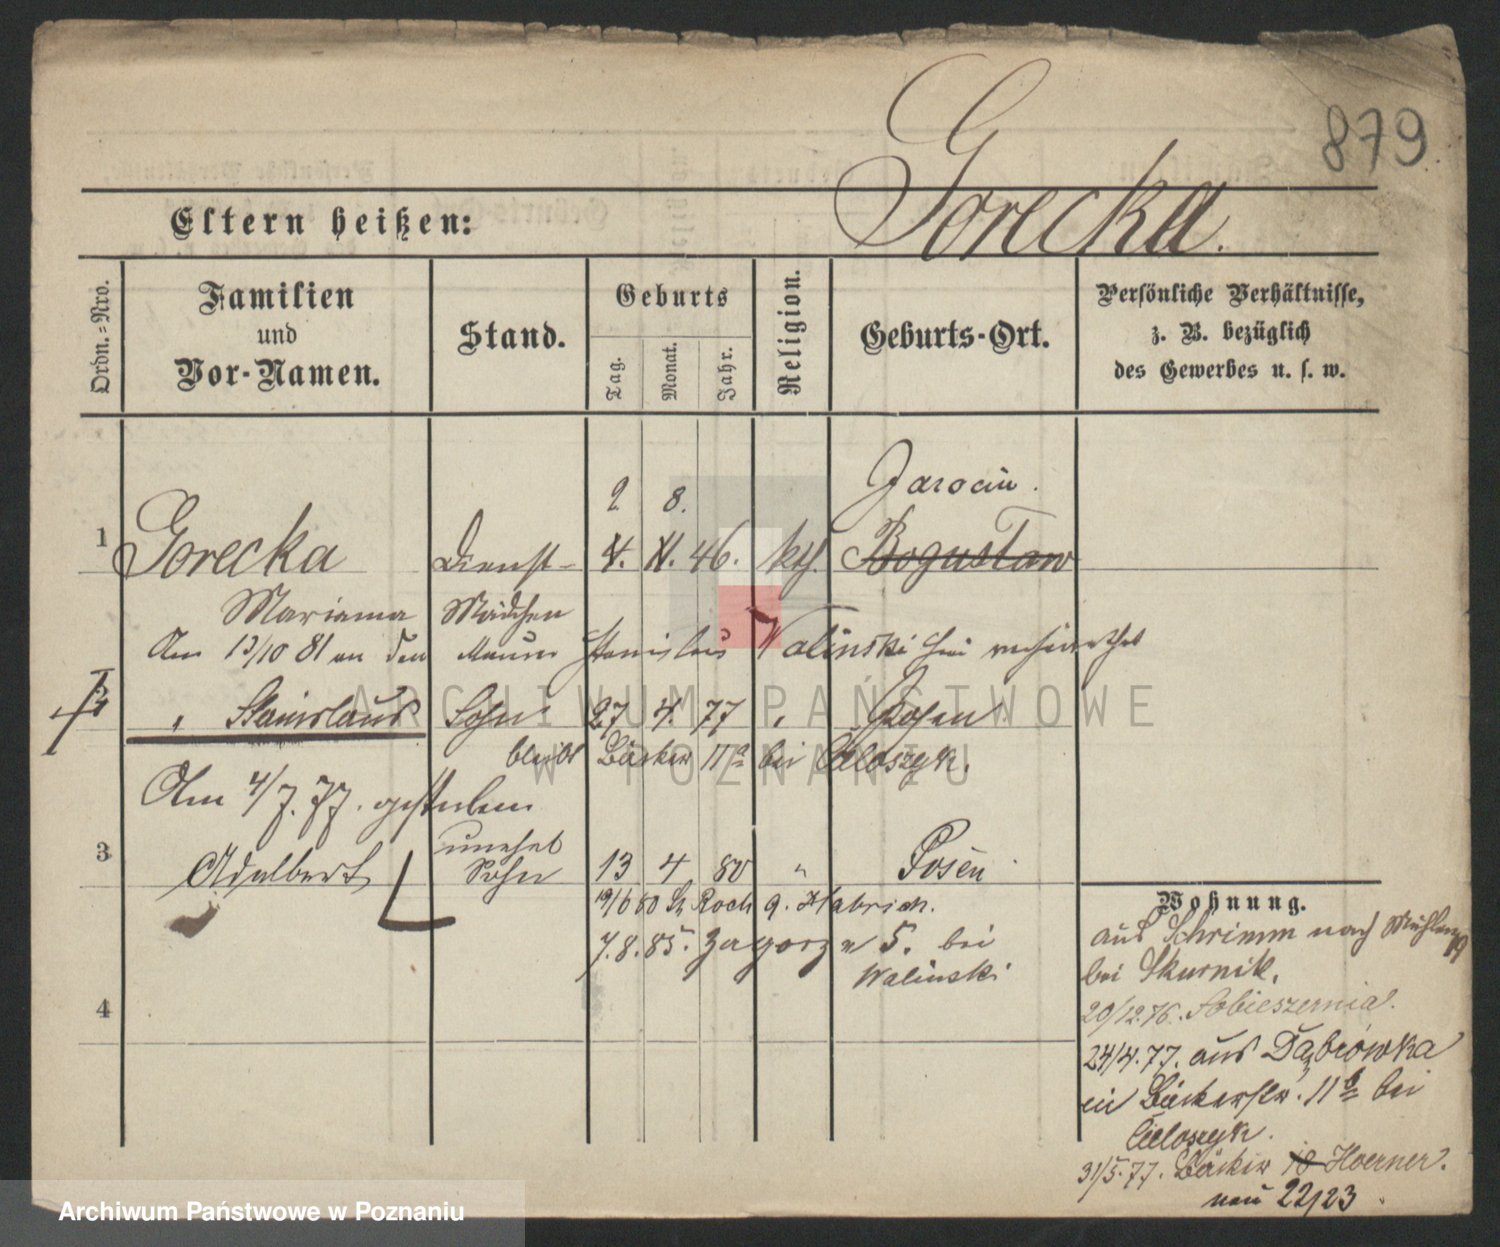 879
Gorecka.
Eltern heißen:
Ordn.=Nro.
Familien
und
Vor-Namen.
Stand.
Geburts
Tag.
Monat.
Jahr.
Religion.
Geburts-Ort.
Persönliche Verhältnisse,
z. B. bezüglich
des Gewerbes u. s. w.
Jarocin.
2. 8.
1 Gorecka Dienst- V. 46. kth. Bogusław
Marianna Mädchen
Am 13/10 81 an den Maurer Stanislaus Walinski hier verheirathet
" Stanislaus Sohn 27 4 77 " Posen
bleibt Bäcker 11a bei Cieloszyk.
Am 4/7. 77. gestorben
unehel
3 Adalbert Sohn 13 4 80 " Posen
19/6 80 St Roch 9. Habrich.
7.8.85. Zagorze 5. bei
Walinski
4
Wohnung.
aus Schrimm nach Mühlen
bei Skurnik.
20/12.76. Sobieszernia.
24/4.77. aus Dąbrówka
in Bäckerstr. 11b bei
Cieloszyk.
31/5.77. Bäcker 18 Hoerner.
neu 22/23.
ARCHIWUM PAŃSTWOWE
W POZNANIU
Archiwum Państwowe w Poznaniu